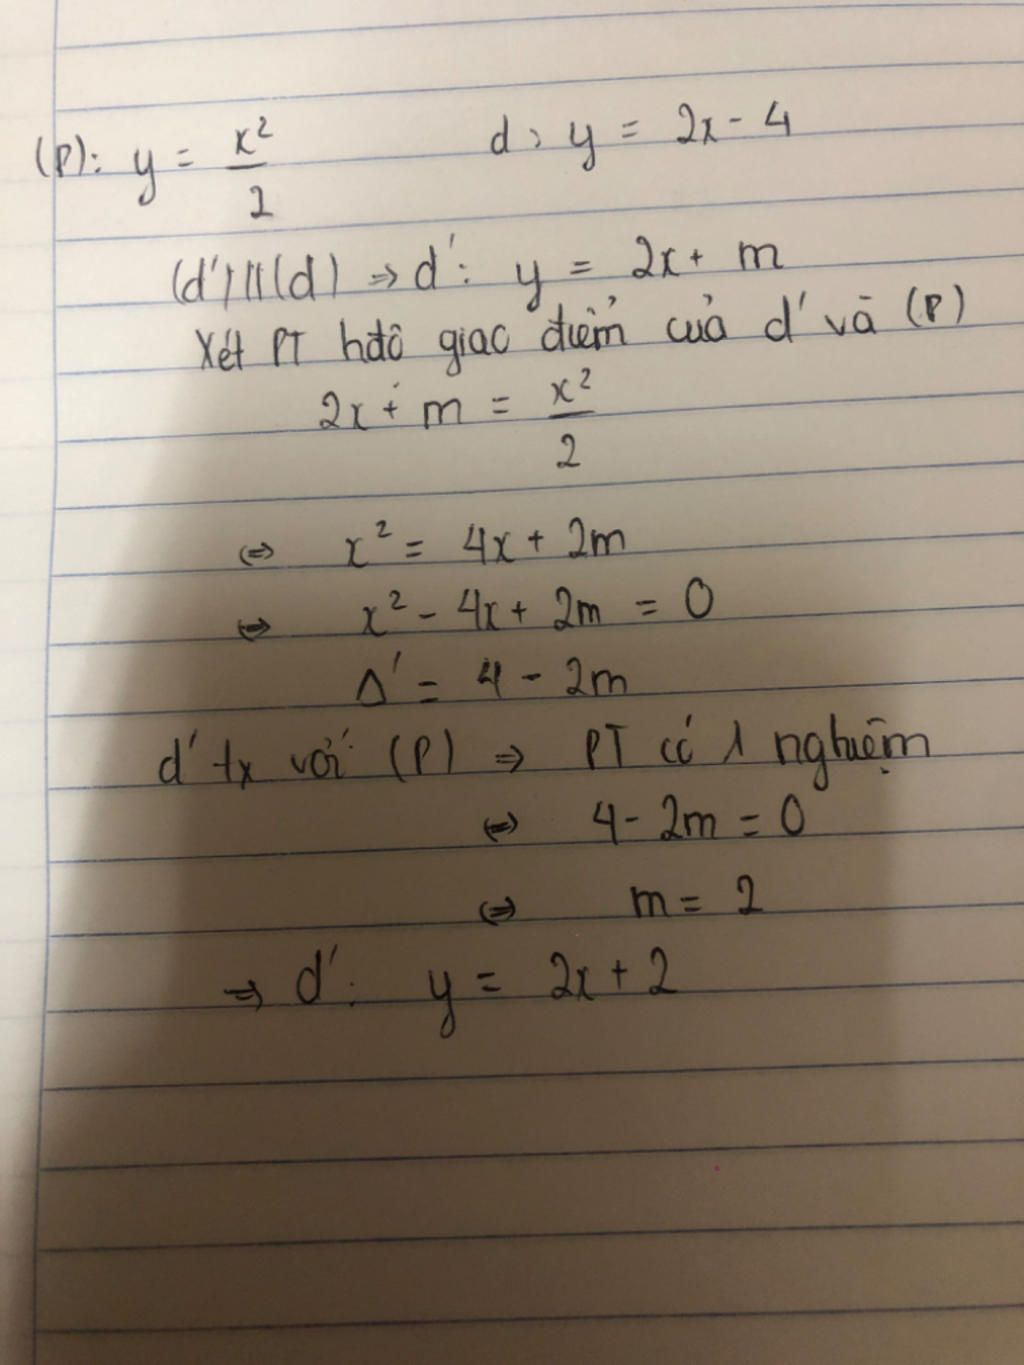 (P): y = x²/2 d: y = 2x - 4
(d') // (d) => d': y = 2x + m
Xét PT hđộ giao điểm của d' và (P)
2x + m = x²/2
<=> x² = 4x + 2m
<=> x² - 4x + 2m = 0
Δ' = 4 - 2m
d' tx với (P) => PT có 1 nghiệm
<=> 4 - 2m = 0
<=> m = 2
=> d': y = 2x + 2